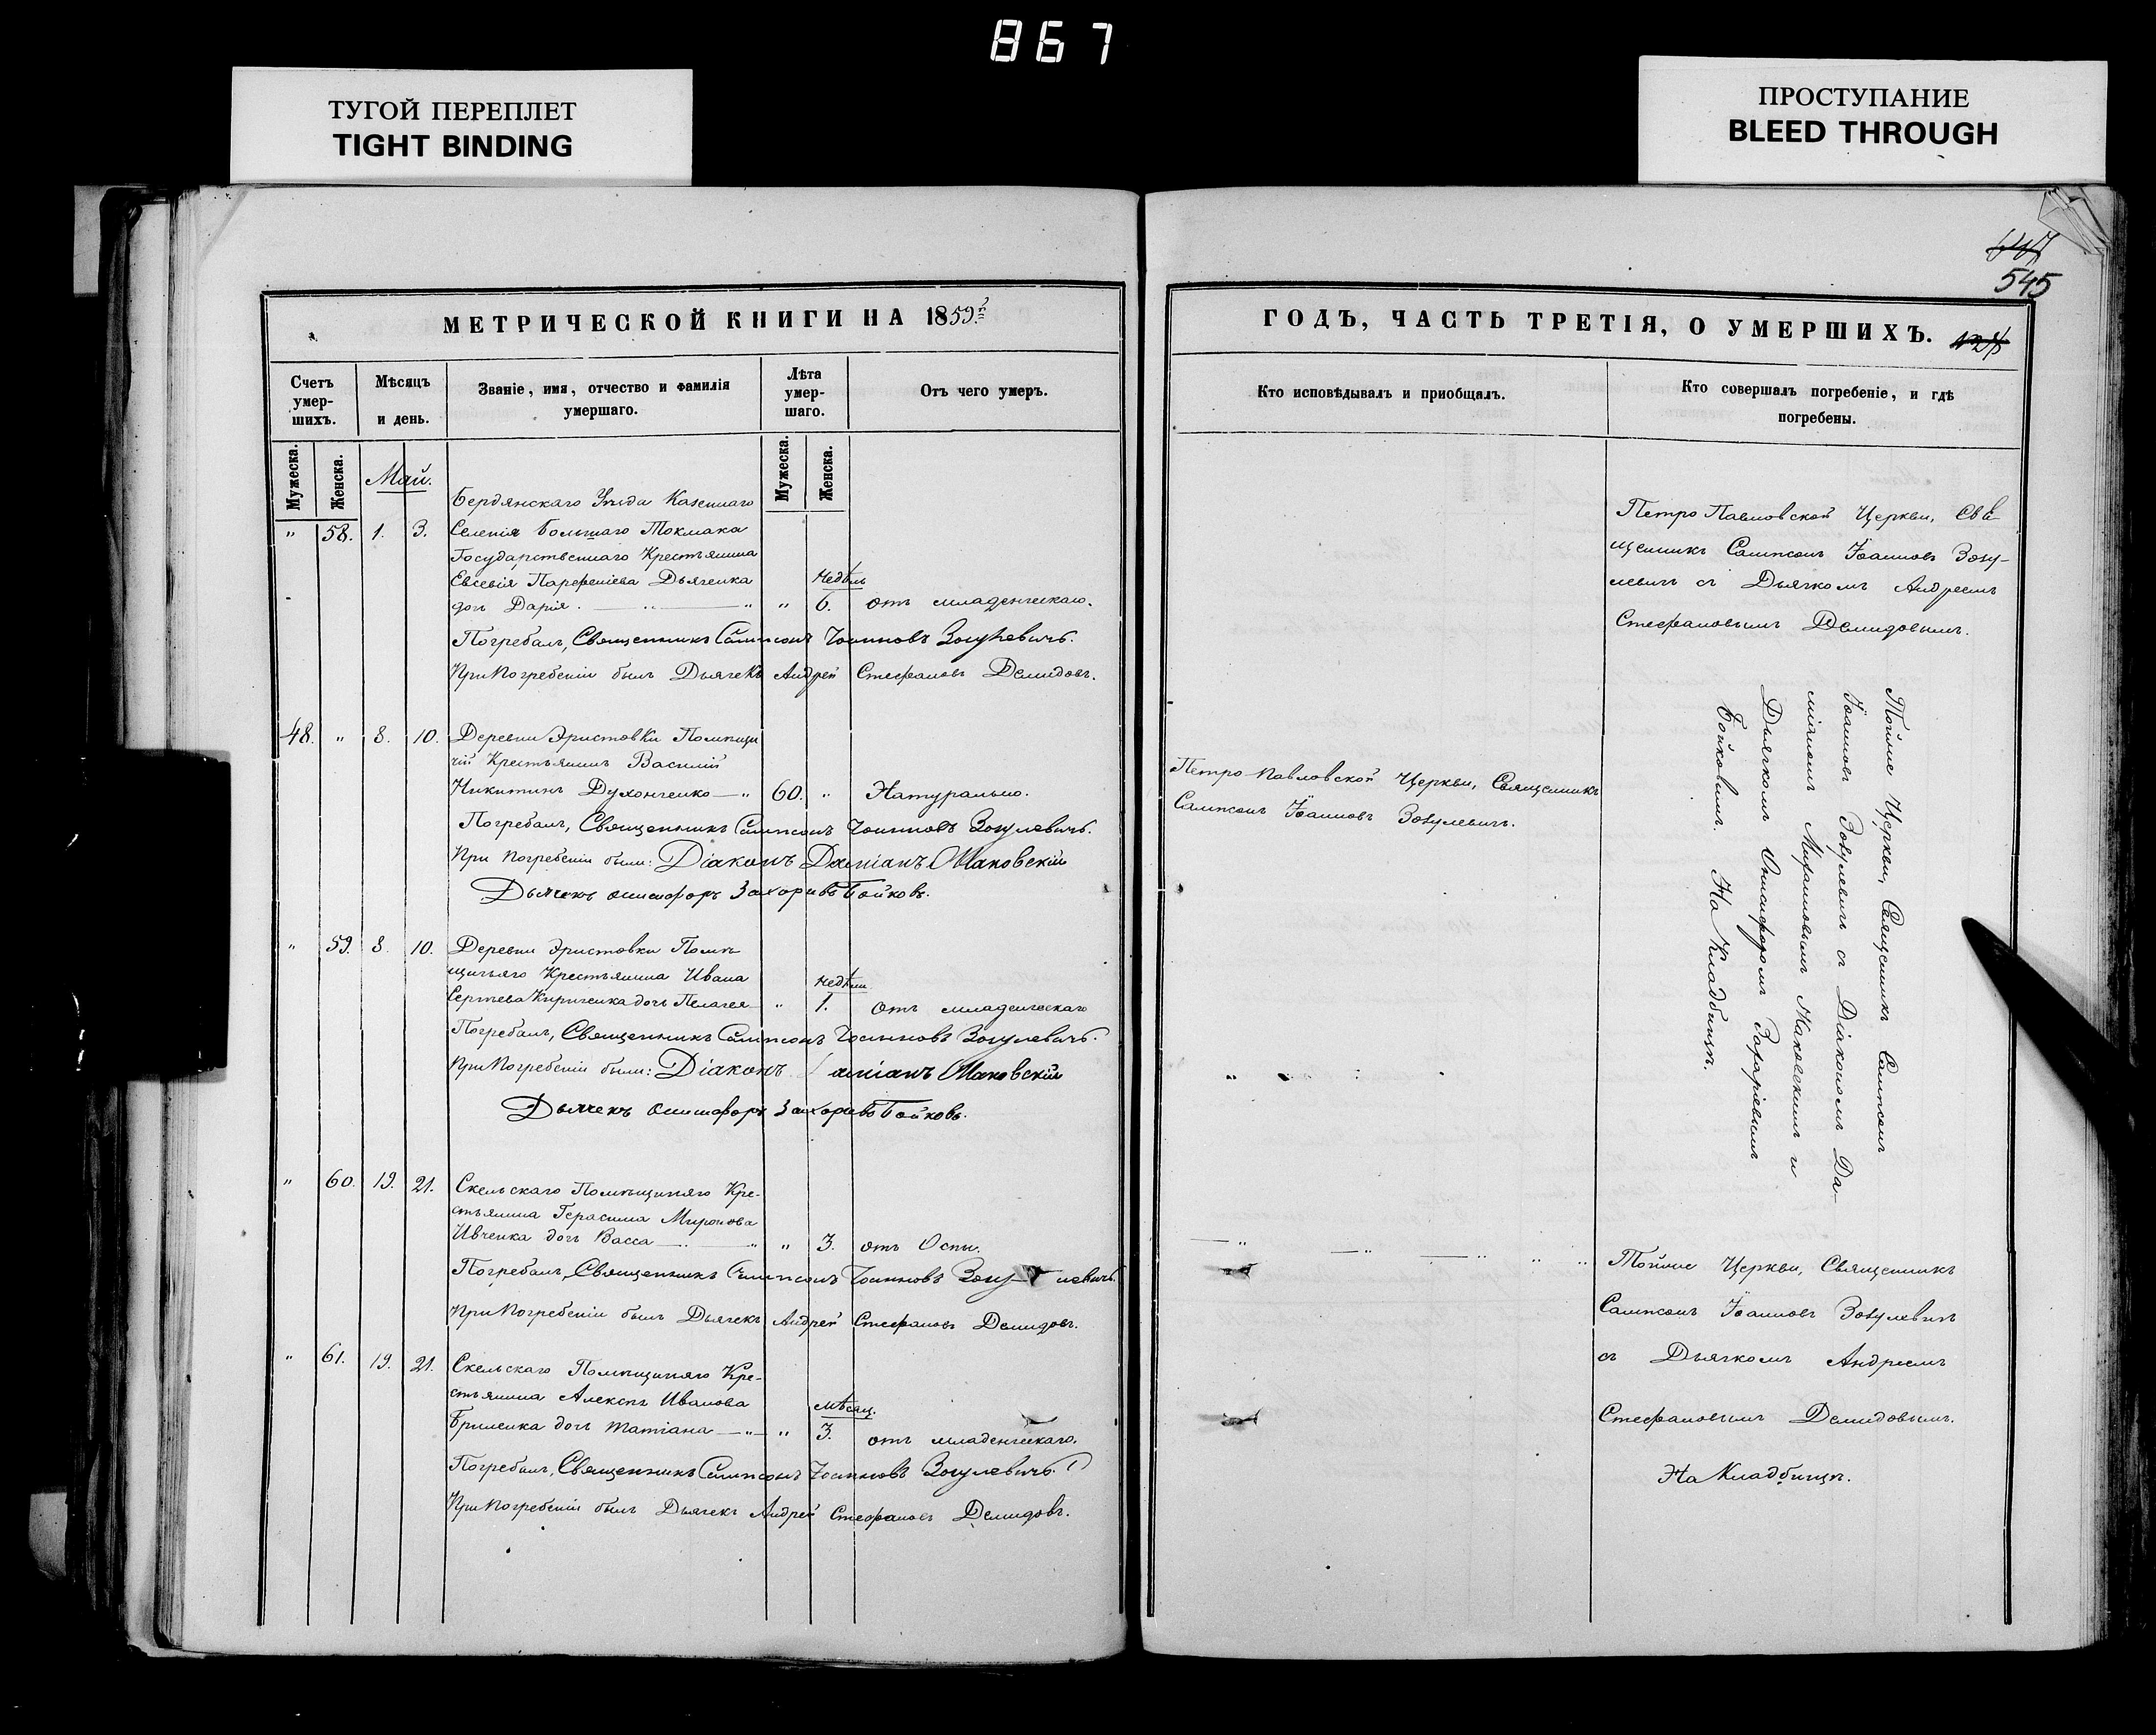 867
ТУГОЙ ПЕРЕПЛЕТ
TIGHT BINDING
ПРОСТУПАНИЕ
BLEED THROUGH
545
МЕТРИЧЕСКОЙ КНИГИ НА 1859й
Счетъ умер- шихъ.
Мѣсяцъ и день.
Званіе, имя, отчество и фамилія умершаго.
Лѣта умер- шаго.
Отъ чего умеръ.
Мужеска.
Женска.
Май.
Мужеска.
Женска.
Бердянскаго Уѣзда Казеннаго
" 58. 1. 3. Селенія Большаго Токмака
Государственнаго Крестьянина
Евсевія Парфеніева Дьяченка недѣль
дочь Дарія. " " 6. отъ младенческаго.
Погребалъ, Священникъ Сампсонъ Іоанновъ Зозулевичъ.
При Погребеніи былъ Дьячекъ Андрей Стефановъ Демидовъ.
48. " 8. 10. Деревни Эристовки Помѣщи
чій Крестьянинъ Василій
Никитинъ Духонченко " 60. " Натурально.
Погребалъ, Священникъ Сампсонъ Іоанновъ Зозулевичъ.
При Погребеніи были: Діаконъ Даміанъ Маковскій
Дьячекъ Онисифоръ Захаріевъ Бойковъ.
" 59. 8. 10. Деревни Эристовки Помѣ
щичьяго Крестьянина Ивана недѣли
Сергѣева Кириченка дочь Пелагея " 1. отъ младенческаго
Погребалъ, Священникъ Сампсонъ Іоанновъ Зозулевичъ.
При Погребеніи были: Діаконъ Даміанъ Маковскій
Дьячекъ Онисифоръ Захаріевъ Бойковъ.
" 60. 19. 21. Скельскаго Помѣщичяго Кре-
стьянина Герасима Миронова
Ивченка дочь Васса " " 3. отъ Оспы.
Погребалъ, Священникъ Сампсонъ Іоанновъ Зозулевичъ.
При Погребеніи былъ Дьячекъ Андрей Стефановъ Демидовъ.
" 61. 19. 21. Скельскаго Помѣщичяго Кре-
стьянина Алексѣя Иванова мѣсяц.
Бриленка дочь Татіана " " 3. отъ младенческаго.
Погребалъ, Священникъ Сампсонъ Іоанновъ Зозулевичъ.
При Погребеніи былъ Дьячекъ Андрей Стефановъ Демидовъ.
ГОДЪ, ЧАСТЬ ТРЕТІЯ, О УМЕРШИХЪ.
Кто исповѣдывалъ и пріобщалъ.
Кто совершалъ погребеніе, и гдѣ погребены.
Петро Павловской Церкви, Свя
щенникъ Сампсонъ Іоанновъ Зозу-
левичъ съ Дьячкомъ Андреемъ
Стефановымъ Демидовымъ.
Петро-Павловской Церкви, Священникъ
Сампсонъ Іоанновъ Зозулевичъ.
Тойже Церкви, Священникъ Сампсонъ
Іоанновъ Зозулевичъ съ Діакономъ Да-
міаномъ Маковскимъ и
Дьячкомъ Онисифоромъ Захаріевымъ
Бойковымъ. На Кладбищѣ.
Тойже Церкви, Священникъ
Сампсонъ Іоанновъ Зозулевичъ
съ Дьячкомъ Андреемъ
Стефановымъ Демидовымъ.
На Кладбищѣ.